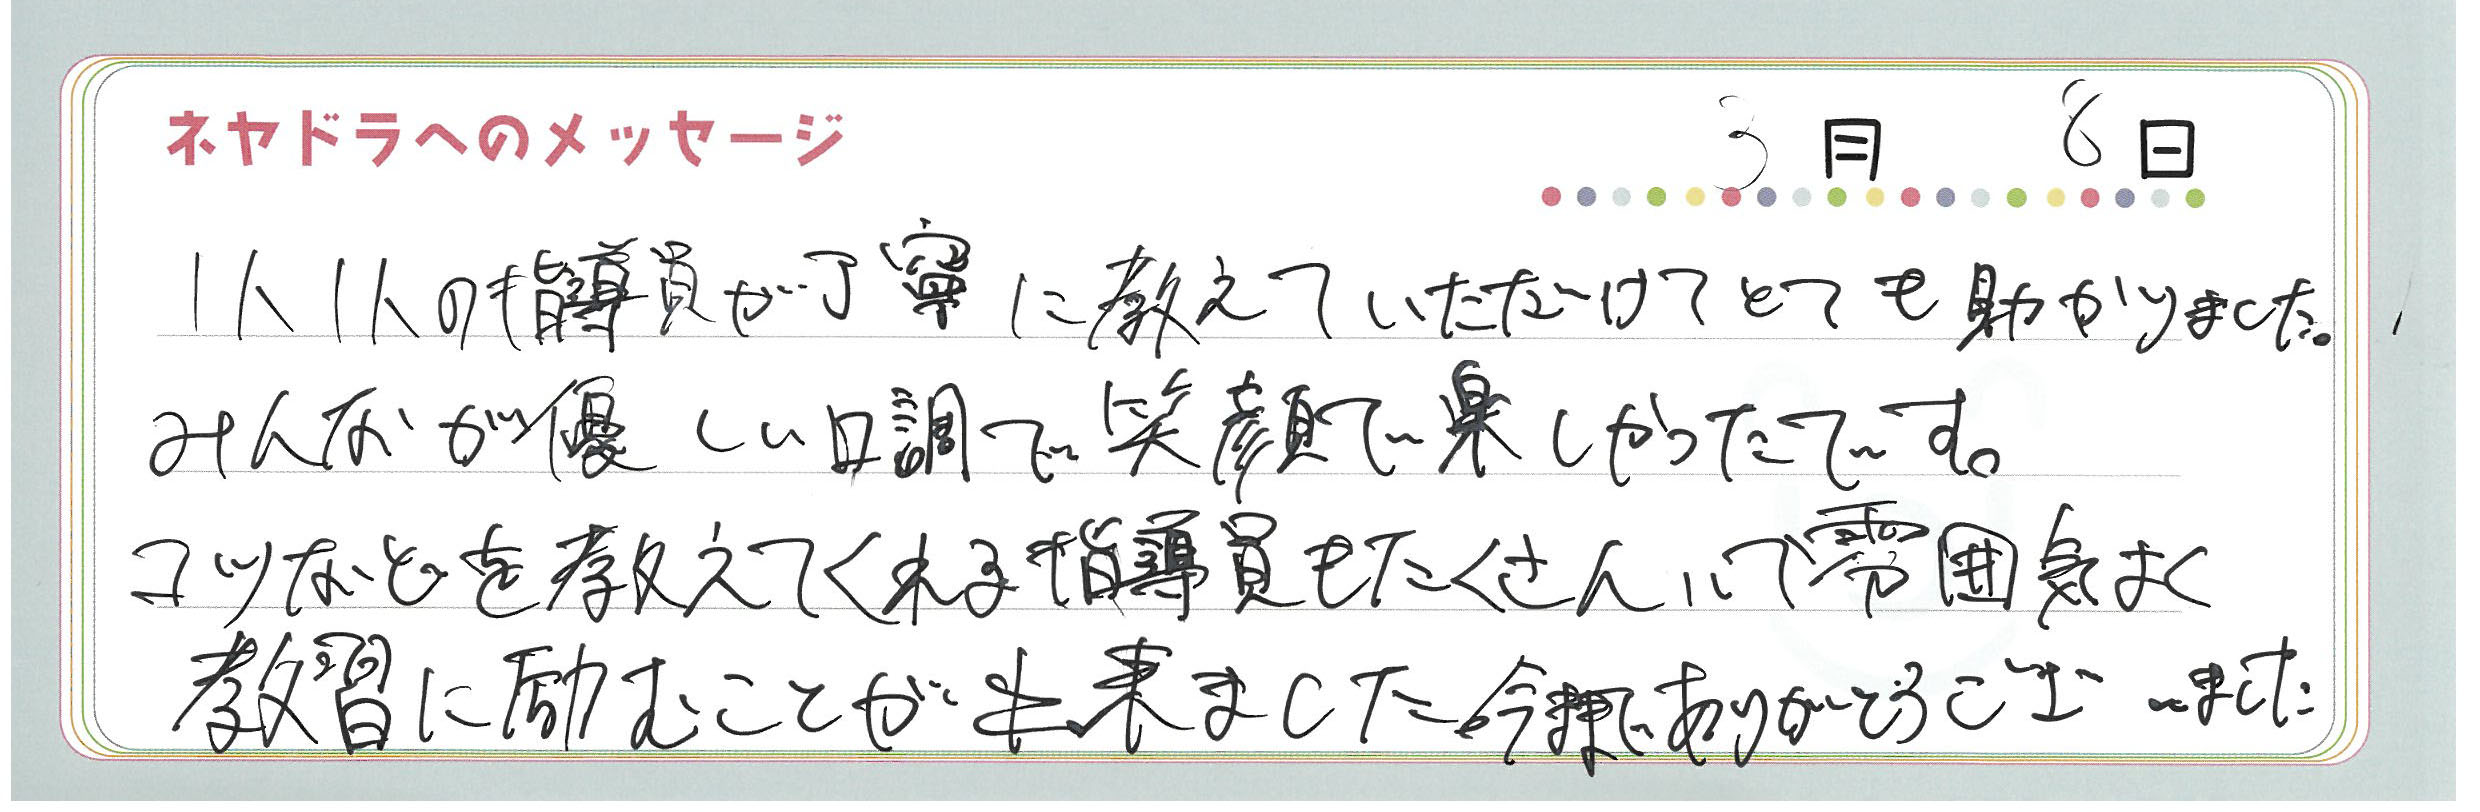 ネヤドラへのメッセージ
3月 8日
1人1人の指導員が丁寧に教えていただけてとても助かりました。
みんなが優しい口調で笑顔で楽しかったです。
コツなどを教えてくれる指導員もたくさんいて雰囲気よく
教習に励むことが出来ました今までありがとうございました